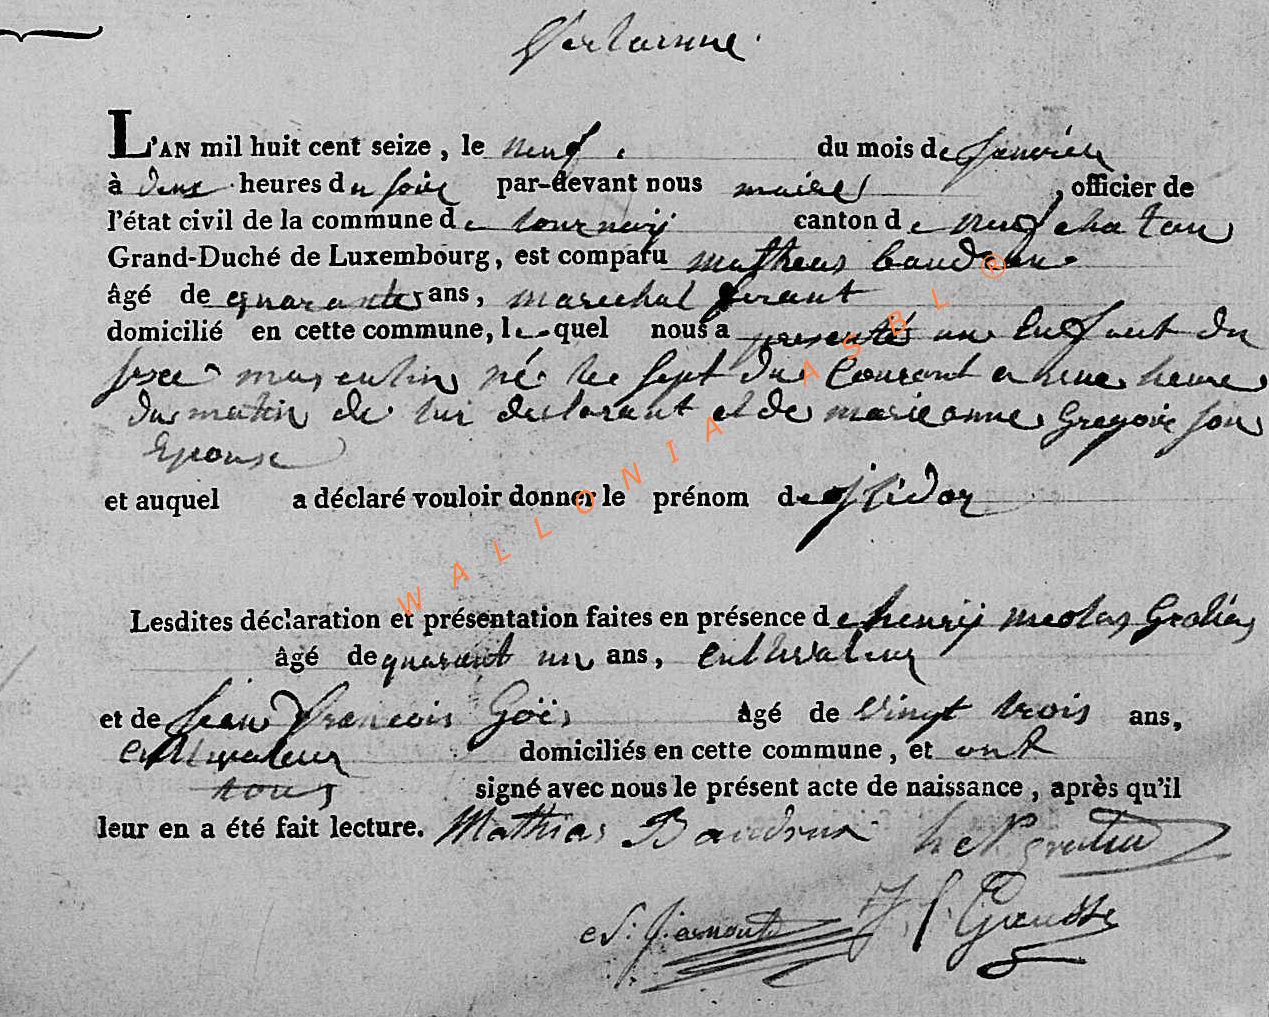 Verlainne.
L'AN mil huit cent seize, le neuf. du mois de Janvier
à deux heures du soir par-devant nous maire, officier de
l'état civil de la commune de tournay canton de neufchatau
Grand-Duché de Luxembourg, est comparu matheus baudrux
âgé de quarante ans, marechal ferant
domicilié en cette commune, le-quel nous a presentés un Enfant du
sexe masculin né le sept du Courant a neuf heure
du matin de lui declarant et de marieanne Gregoire son
Epouse
et auquel a déclaré vouloir donner le prénom de isidor
Lesdites déclaration et présentation faites en présence de henry nicolas
âgé de quarant un ans, cultivateur
et de Jean françois Goës âgé de vingt trois ans,
cultivateur domiciliés en cette commune, et ont
tous signé avec nous le présent acte de naissance, après qu'il
leur en a été fait lecture. Mathias Baudrux
WALLONIA ASBL ®